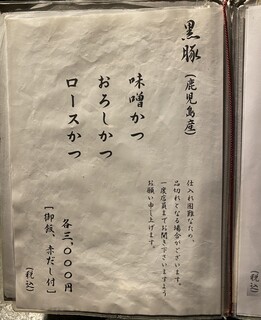 黒豚(鹿児島産)
味噌かつ
おろしかつ
ロースかつ
仕入れ困難なため、
品切れとなる場合がございます。
一度店員までお聞き下さいますよう
お願い申し上げます。
各三、〇〇〇円
[御飯、赤だし付]
(税込)
(税込)